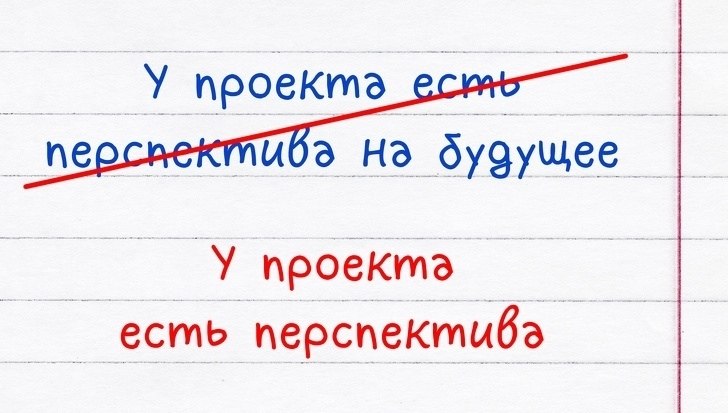 У проекта есть
перспектива на будущее
У проекта
есть перспектива